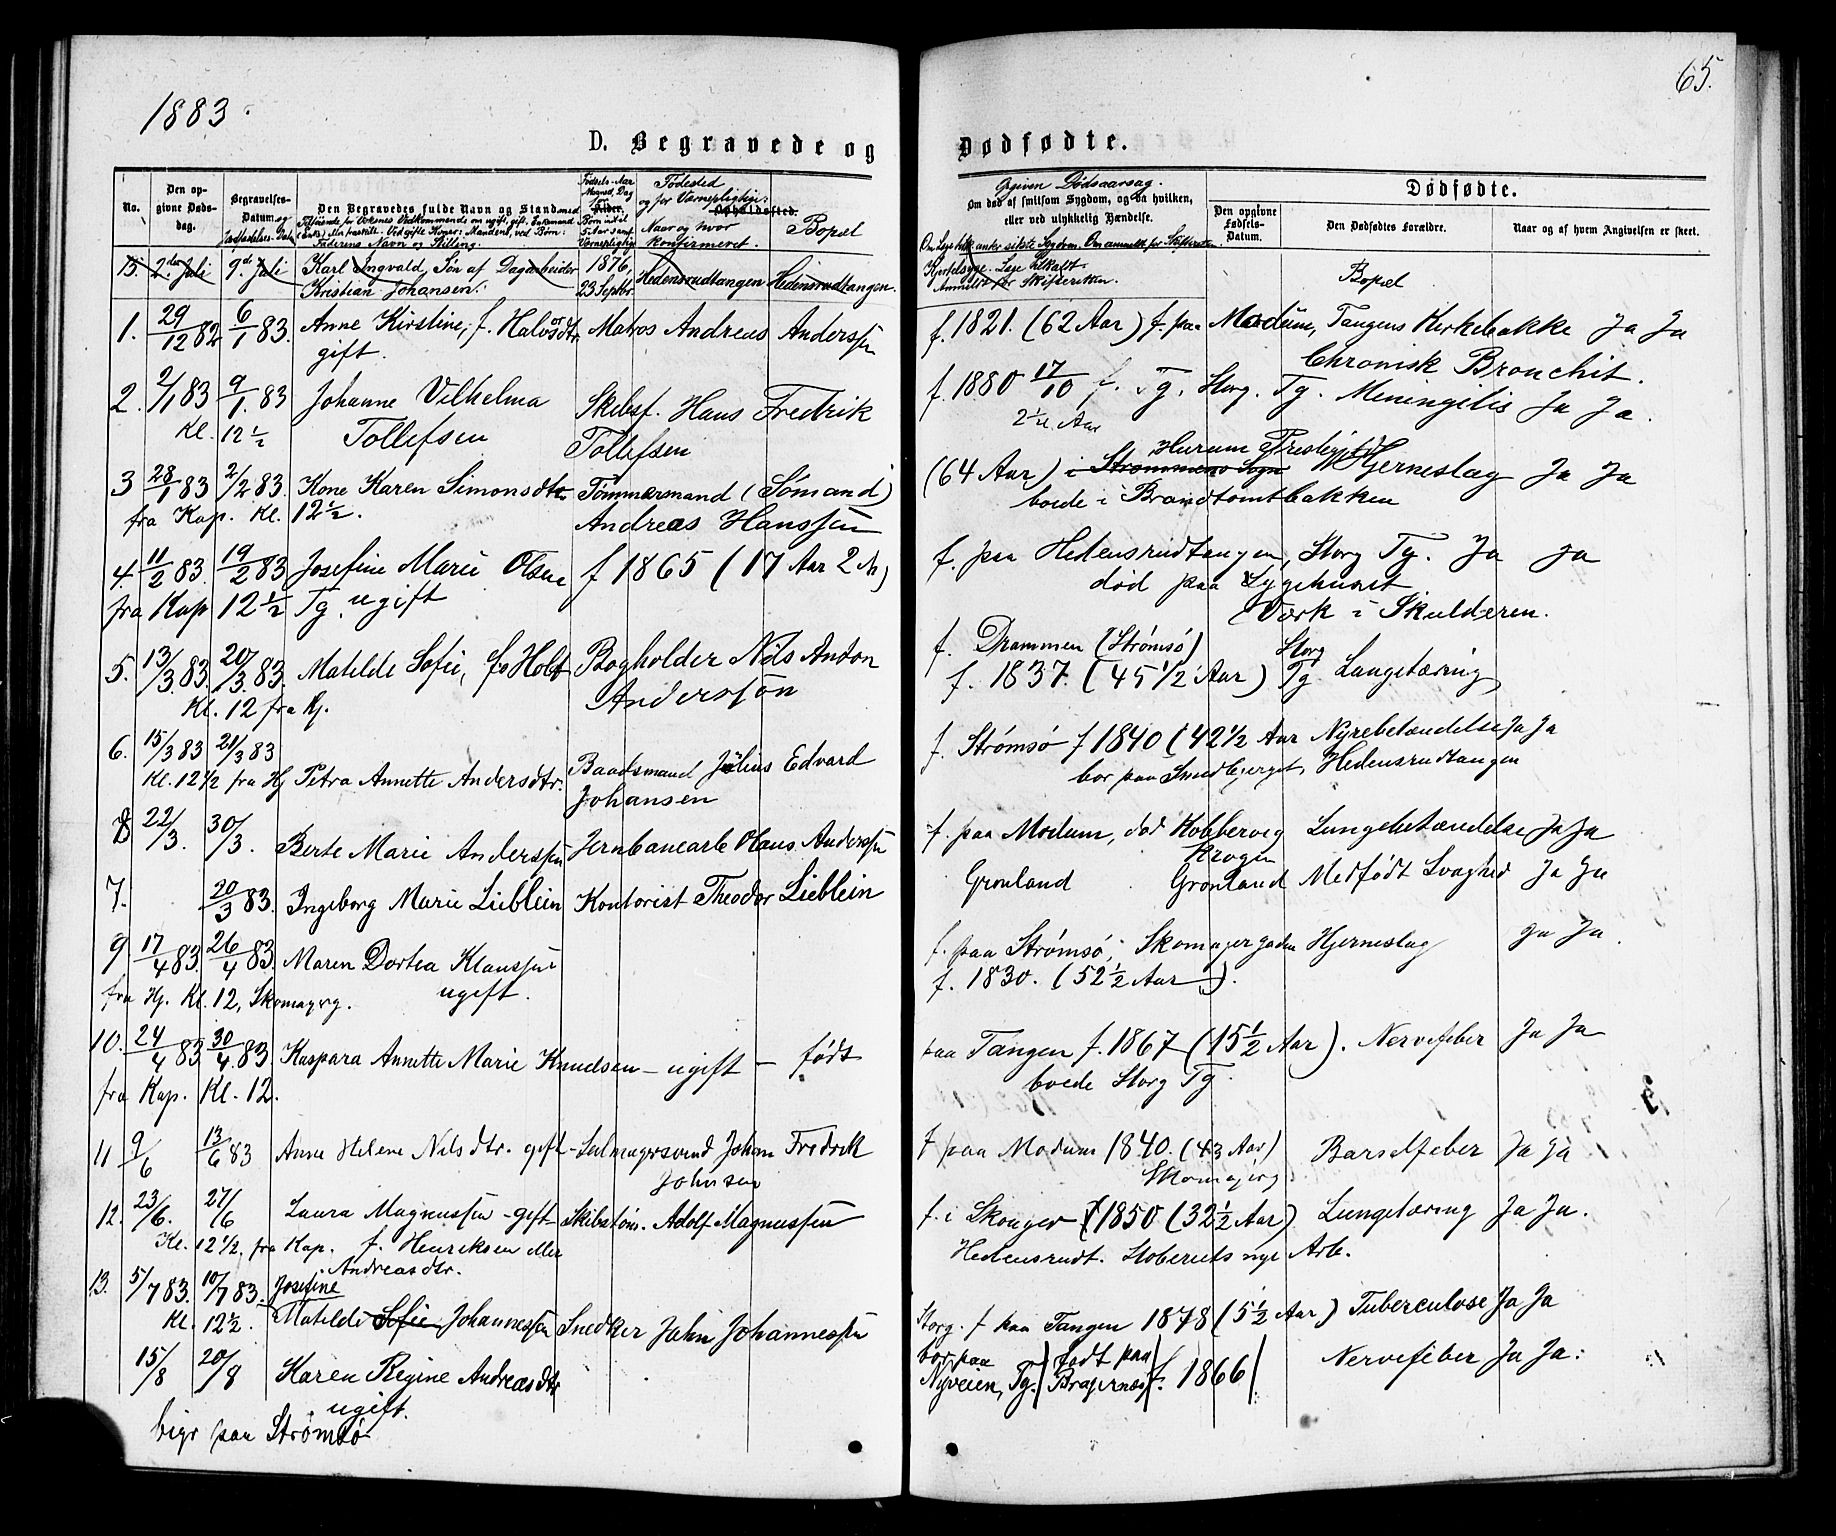 1883.
65.
D. Begravede og Dødfødte.
No.
Den opgivne Dødsdag.
Begravelses-Datum. og Jordfæstelses-Dat.
Den Begravedes fulde Navn og Stand
Fødested og for Værnepligtige: Naar og hvor konfirmeret.
Opholdssted.
Bopæl
Opgiven Dødsaarsag.
Om død af smitsom Sygdom, og da hvilken, eller ved ulykkelig Hændelse.
Dødfødte.
Den opgivne Fødsels-Datum.
Den Dødfødtes Forældre.
Naar og af hvem Angivelsen er skeet.
15. 2den Juli 9de Juli Karl Ingvald, Søn af Dagarbeider 1876, Hedensrudtangen Hedensrudtangen.
Kristian Johansen. 23 Septbr.
Bopæl
1. 29/12 82 6/1 83. Anne Kirstine, f. Halvorsdtr. Matros Andreas Anderssen f. 1821. (62 Aar) f. paa Modum, Tangens Kirkebakke Ja Ja
gift. Chronisk Bronchit.
2. 2/1 83 9/1. 83 Johanne Vilhelma Skibsf. Hans Fredrik f. 1880 17/10 f. Tg. Storg. Tg. Meningitis Ja Ja.
Kl. 12 1/2 Tollefsen Tollefsen 2 1/4 Aar
3 28/1 83 2/2. 83. Kone Karen Simonsdtr. Tømmermand (Sømand) (64 Aar) i Strømmens Sogn Hurum Præstegjeld Hjerneslag Ja Ja
fra Kap. Kl. 12 1/2. Andreas Hanssen boede i Brandtomtbakken
4. 11/2 83. 19/2 83 Josefine Marie Olsen f 1865 (17 Aar 2 M) f. paa Hedensrudtangen, Storg Tg. Ja Ja
fra Kap 12 1/2 Tg. ugift død paa Sygehuset
Værk i Skulderen.
5. 13/3. 83. 20/3. 83. Matilde Sofie, f. Holt Bogholder Nils Anton f. Drammen (Strømsø) Storg
Kl. 12 fra Kj. Anderssøn f. 1837. (45 1/2 Aar) Tg. Lungetæring
6. 15/3 83 21/3 83 f. Strømsø f 1840 (42 1/2 Aar Nyrebetændelse Ja Ja
Kl. 12 1/2 fra Hj Petra Annette Andersdtr. Baadsmand Julius Edvard Johansen bor paa Smedbjerget, Hedensrudtangen
8 22/3. 30/3. Berte Marie Anderssen Jernbanearb Olaus Anderssen f. paa Modum, død Kobbervig Lungebetændelse Ja Ja
Krogen
7. 20/3 83. Ingeborg Marie Lieblein Kontorist Theodor Lieblein Grønland Grønland Medfødt Svaghed Ja Ja
9 17/4 83. 26/4 83. Maren Dortea Klaussen f. paa Strømsø, Skomagergaden Hjerneslag Ja Ja
fra Hj. Kl. 12, Skomagrg. ugift. f. 1830. (52 1/2 Aar).
10. 24/4 83 30/4. 83. Kaspara Annette Marie Knudsen - ugift - født paa Tangen f. 1867 (15 1/2 Aar). Nervefeber Ja Ja
fra Kap. Kl. 12. boede Storg Tg.
11 9/6 13/6 83 Anne Helene Nilsdtr. gift - Salmagersvend Johan Fredrik f paa Modum 1840. (43 Aar) Barselfeber Ja Ja
Johnsen Skomagerg
12. 23/6. 27/6 Laura Magnussen - gift - Skibstøm. Adolf Magnussen f. i Skouger f 1850 (32 1/2 Aar) Lungetæring Ja Ja.
Kl. 12 1/2. fra Kap. f. Henriksen eller Andreasdtr. Hedensrudt. Støberiets nye Arb.
13. 5/7 83. 10/7 83. Josefine
Kl. 12 1/2. Matilde Sofie Johannessen Snedker John Johannessen Storg. f paa Tangen 1878 (5 1/2 Aar) Tuberculose Ja Ja
15/8 20/8 Karen Regine Andreasdtr bor paa Nyveien, Tg. født paa Bragernæs f. 1866 Nervefeber Ja Ja.
ugift.
bigr paa Strømsø